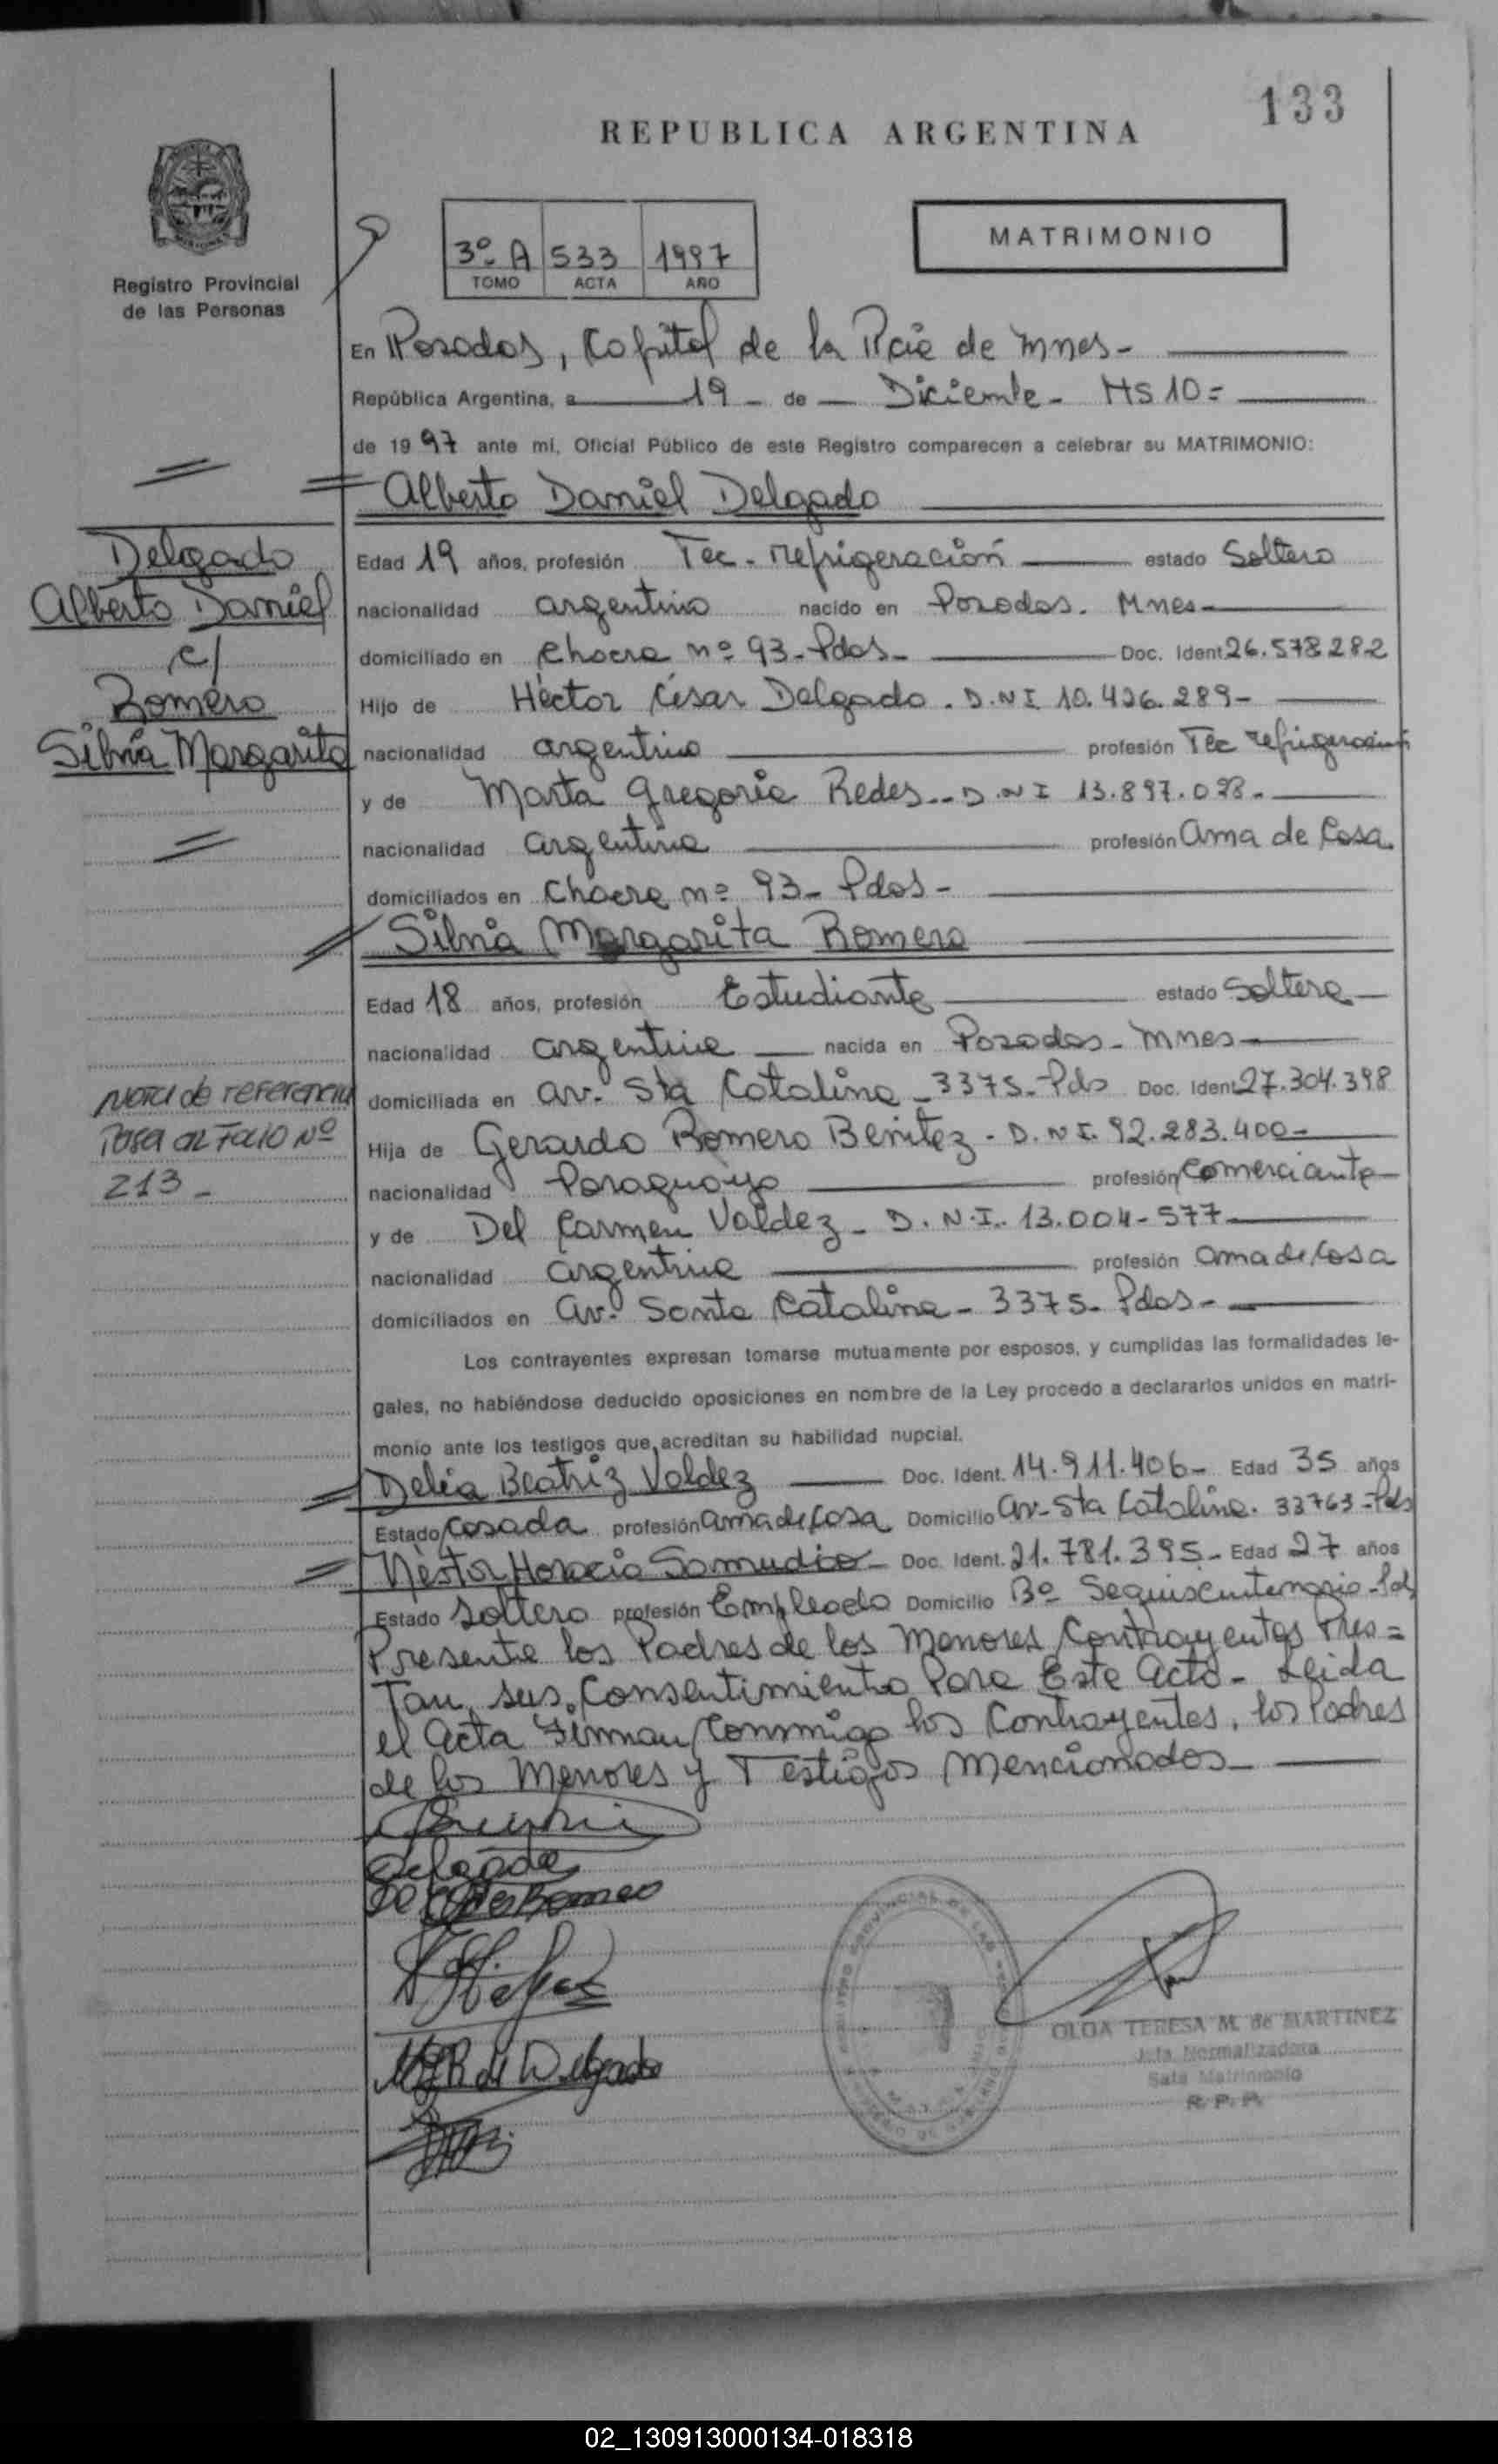 133
REPUBLICA ARGENTINA
Registro Provincial
de las Personas
3º A 533 1997
TOMO ACTA AÑO
MATRIMONIO
En Posadas, Capital de la Pcia de Mnes-
República Argentina, a 19 - de - Diciembre - HS 10=
de 1997 ante mi, Oficial Público de este Registro comparecen a celebrar su MATRIMONIO:
Alberto Daniel Delgado
Edad 19 años, profesión Tec. refrigeración estado Soltero
nacionalidad argentino nacido en Posadas. Mnes-
domiciliado en Chacra nº 93-Pdas- Doc. Ident 26.578.282
Hijo de Héctor César Delgado. D.N.I 10.426.289-
nacionalidad argentino profesión Tec refrigeración
y de Marta Gregoria Redes.. D.N.I 13.897.028.
nacionalidad argentina profesión ama de Casa
domiciliados en Chacra nº 93- Pdas-
Silvia Margarita Romero
Edad 18 años, profesión Estudiante estado Soltera
nacionalidad argentina nacida en Posadas - Mnes-
domiciliada en av. Sta Catalina - 3375-Pds Doc. Ident 27.304.398
Hija de Gerardo Romero Benitez - D.N.I. 92.283.400-
nacionalidad Paraguayo profesión Comerciante
y de Del Carmen Valdez - D.N.I. 13.004-577
nacionalidad argentina profesión ama de Casa
domiciliados en av. Santa Catalina - 3375- Pdas-
Los contrayentes expresan tomarse mutuamente por esposos, y cumplidas las formalidades le-
gales, no habiéndose deducido oposiciones en nombre de la Ley procedo a declararlos unidos en matri-
monio ante los testigos que acreditan su habilidad nupcial.
Delia Beatriz Valdez Doc. Ident. 14.911.406- Edad 35 años
Estado Casada profesión ama de Casa Domicilio av-Sta Catalina. 33763-Pds
Néstor Horacio Samudio- Doc. Ident. 21.781.395- Edad 27 años
Estado Soltero profesión Empleado Domicilio Bº Sequiscentenario-Pds
Presente los Padres de los Menores Contrayentes Pres=
tan sus Consentimiento Para Este acto- Leida
el acta Firman Conmigo los Contrayentes, los Padres
de los Menores y Testigos Mencionados-
Delgado
Alberto Daniel
c/
Romero
Silvia Margarita
Nota de referencia
Pasa al Folio Nº
213-
Delgado
de Delgado
OLGA TERESA M. de MARTINEZ
Jefa Normalizadora
Sala Matrimonio
R. P. P.
02_130913000134-018318